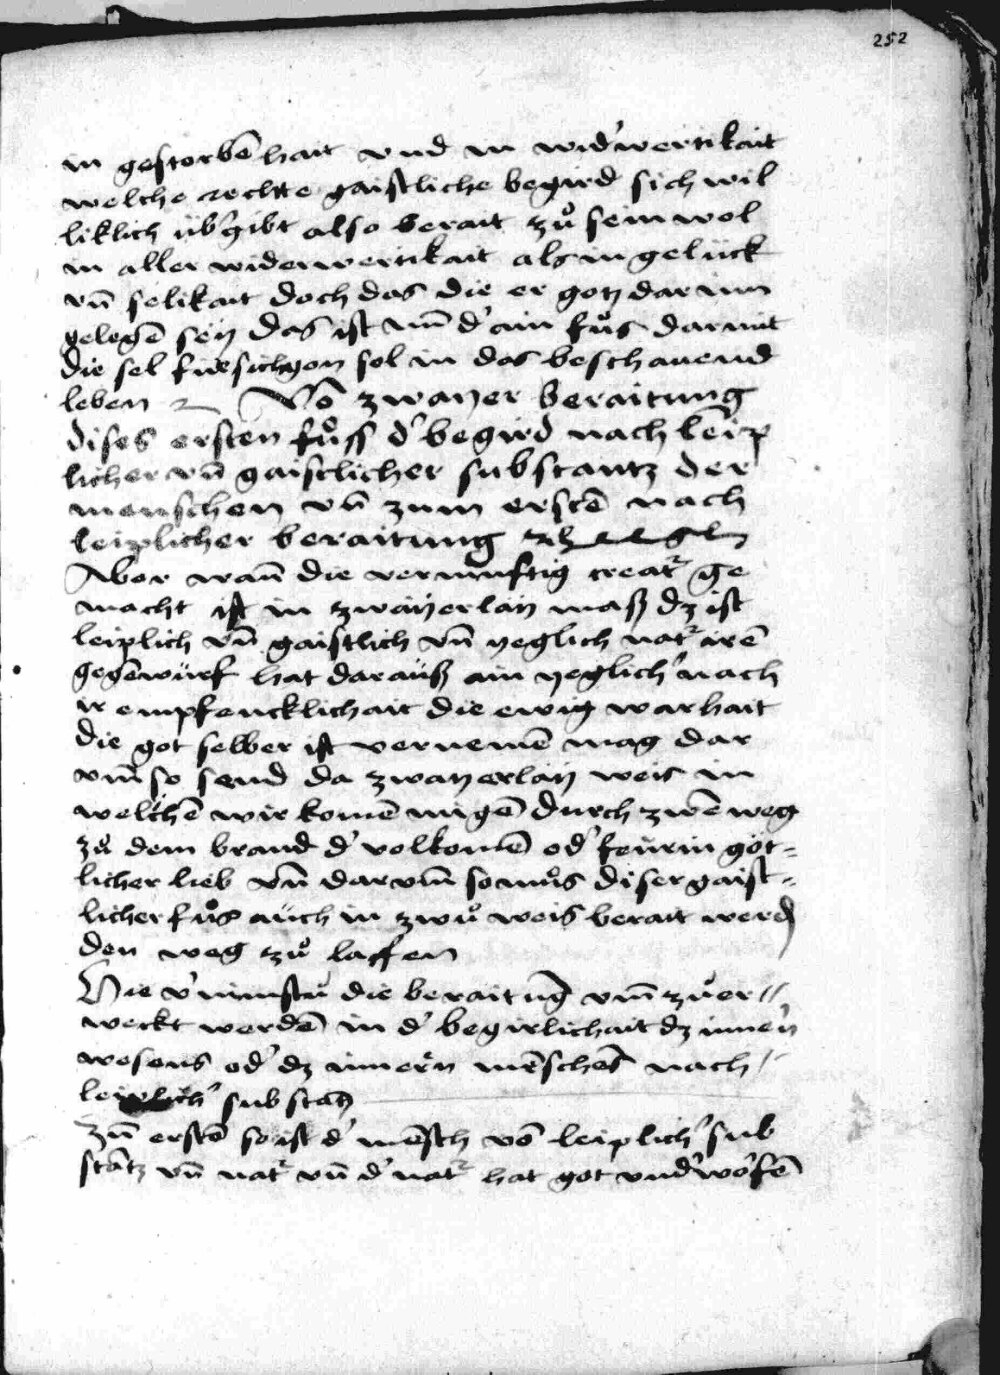 252
in gestorbē hait vnd in wid'wertikait
welche rechte gaistliche begird sich wil
liklich üb'gibt also berait zů sein wol
in aller widerwertikait als in gelück
vn̄ selikait doch das die er gotz dar inn
gelegē seÿ Das ist nun̄ d' ain fůs darmit
die sel fürsichgon sol in das beschauend
leben Vō zwayer beraitung
dises ersten fůss d' begird nach leip
licher vn̄ gaistlicher substantz der
menschen vn̄ zum erstē nach
leiplicher beraitung
Aber wan̄ die vernünftig creatr ge
macht ist in zwaÿerlaÿ maß dz ist
leiplich vn̄ gaistlich vn̄ yeglich natr irē
gegēwürf hat darauß ain yeglich' nach
ir empfencklichait die ewig warhait
die got selber ist vernemē mag dar
vm̄ so send da zwayerlaÿ weis in
welchē wir komē mügē durch zwē weg
zů dem brand d' volkomē od' feürin göt=
licher lieb vn̄ darvm̄ so můs diser gaist=
licher fůs auch in zwů weis berait werdē
den weg zů laffen
Hie v'nimstu die beraitūg vm̄ zůer//
weckt werdē in d' begirlichait dz inne'n
wesens od' dz innern mēsches nach /
leiplich' substātz
Zū erstē so ist d' mēsch vō leiplich' sub
stātz vn̄ natr vn̄ d' natr hat got vnd'wofē